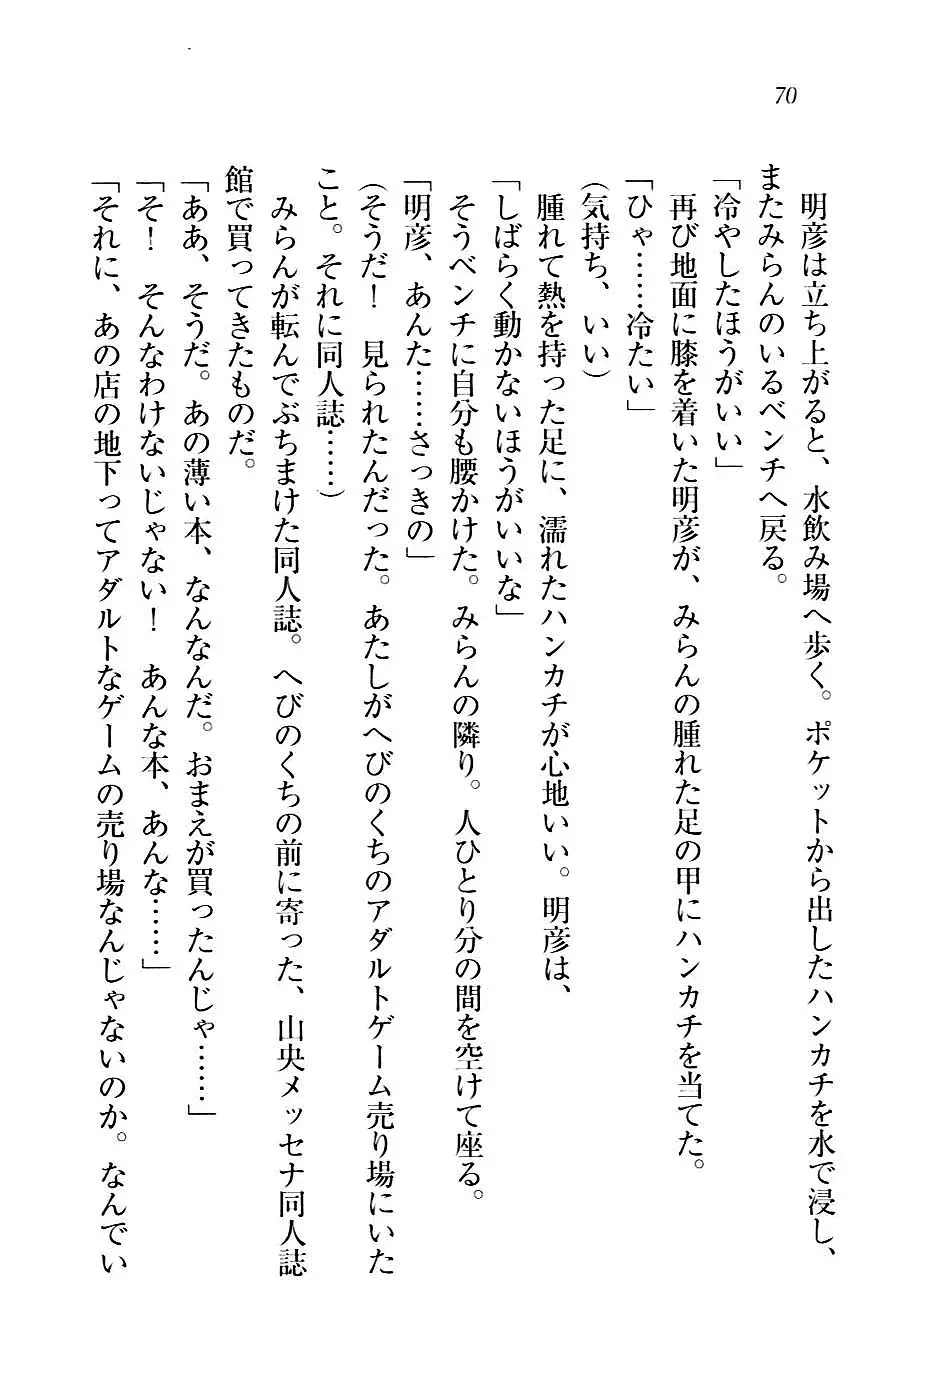 70
明彦は立ち上がると、水飲み場へ歩く。ポケットから出したハンカチを水で浸し、
またみらんのいるベンチへ戻る。
「冷やしたほうがいい」
再び地面に膝を着いた明彦が、みらんの腫れた足の甲にハンカチを当てた。
「ひゃ……冷たい」
(気持ち、いい)
腫れて熱を持った足に、濡れたハンカチが心地いい。明彦は、
「しばらく動かないほうがいいな」
そうベンチに自分も腰かけた。みらんの隣り。人ひとり分の間を空けて座る。
「明彦、あんた……さっきの」
(そうだ！　見られたんだった。あたしがへびのくちのアダルトゲーム売り場にいた
こと。それに同人誌……)
みらんが転んでぶちまけた同人誌。へびのくちの前に寄った、山央メッセナ同人誌
館で買ってきたものだ。
「ああ、そうだ。あの薄い本、なんなんだ。おまえが買ったんじゃ……」
「そ！　そんなわけないじゃない！　あんな本、あんな……」
「それに、あの店の地下ってアダルトなゲームの売り場なんじゃないのか。なんでい